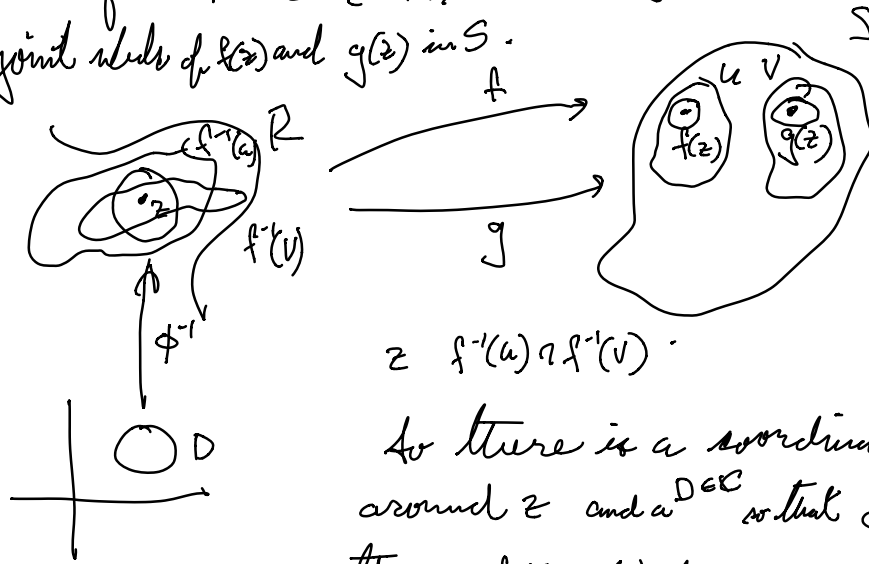 joint nbds of f(z) and g(z) in S.
S
f
U V
f⁻¹(U) R
f(z) g(z)
z
f⁻¹(V)
g
φ⁻¹
z f⁻¹(U) ∩ f⁻¹(V) .
D
So there is a coordina
around z and a D ∈ ℂ so that